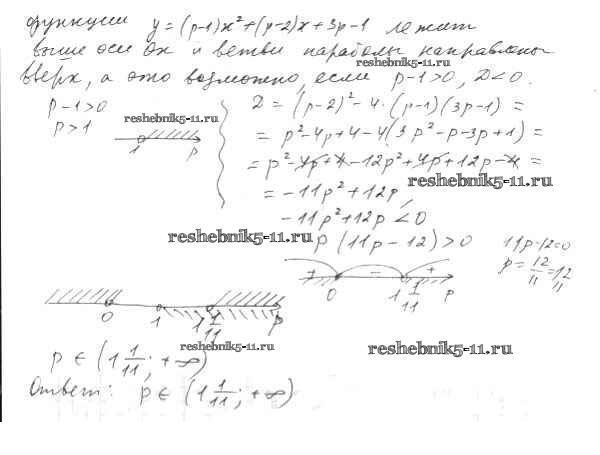 функции y=(p-1)x²+(p-2)x+3p-1 лежит
выше оси Ox и ветви параболы направлены
reshebnik5-11.ru
вверх, а это возможно, если p-1>0, D<0.
p-1>0
p>1
reshebnik5-11.ru
1 p
D = (p-2)² - 4·(p-1)(3p-1) =
= p²-4p+4-4(3p²-p-3p+1) =
= p²-4p+4-12p²+4p+12p-4 =
reshebnik5-11.ru
= -11p²+12p,
-11p²+12p<0
reshebnik5-11.ru
p(11p-12)>0
11p-12=0
p=12/11=12/11
+ - +
0 1 1/11 p
0 1 1 1/11 p
reshebnik5-11.ru
reshebnik5-11.ru
p ∈ (1 1/11; +∞)
Ответ: p ∈ (1 1/11; +∞)